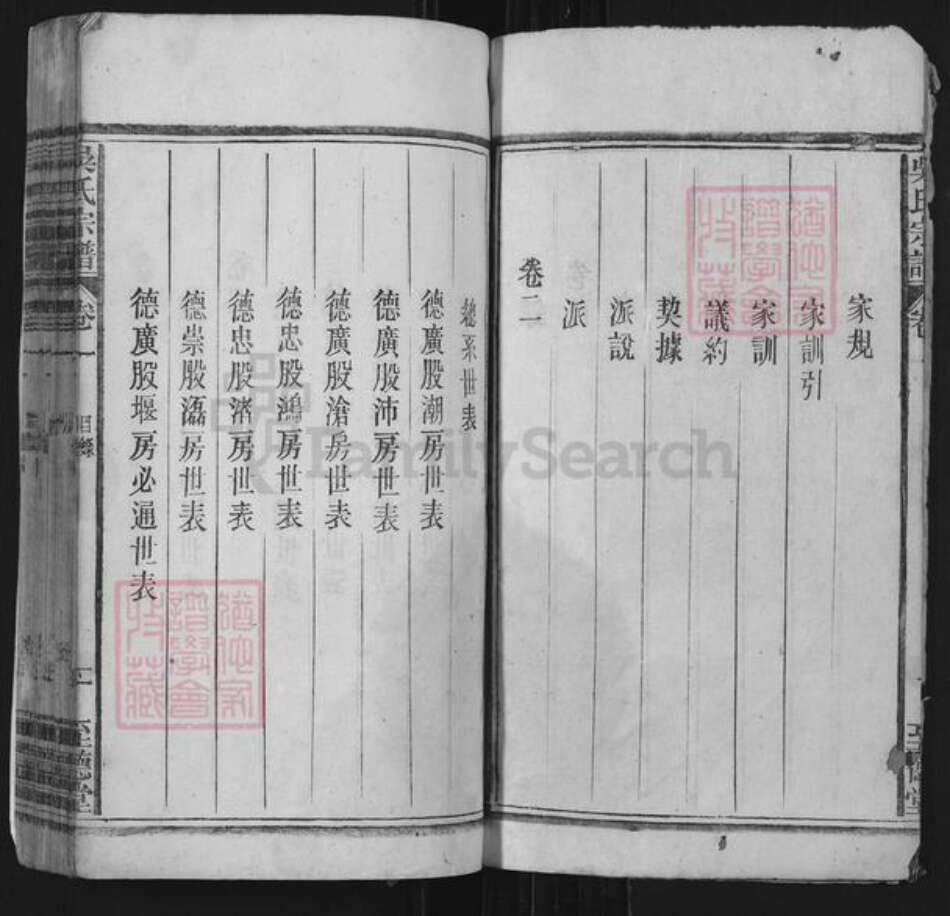 吳氏宗譜
卷
家規
家訓引
家訓
議約
契據
派說
派
卷二
總系世表
德廣股潮房世表
德廣股沛房世表
德廣股滄房世表
德忠股鴻房世表
德忠股濟房世表
德崇股灊房世表
德廣股堰房必通世表
吳氏宗譜
卷一
目錄
至德堂
至德堂
譜學會
收藏
譜學會
收藏
FamilySearch